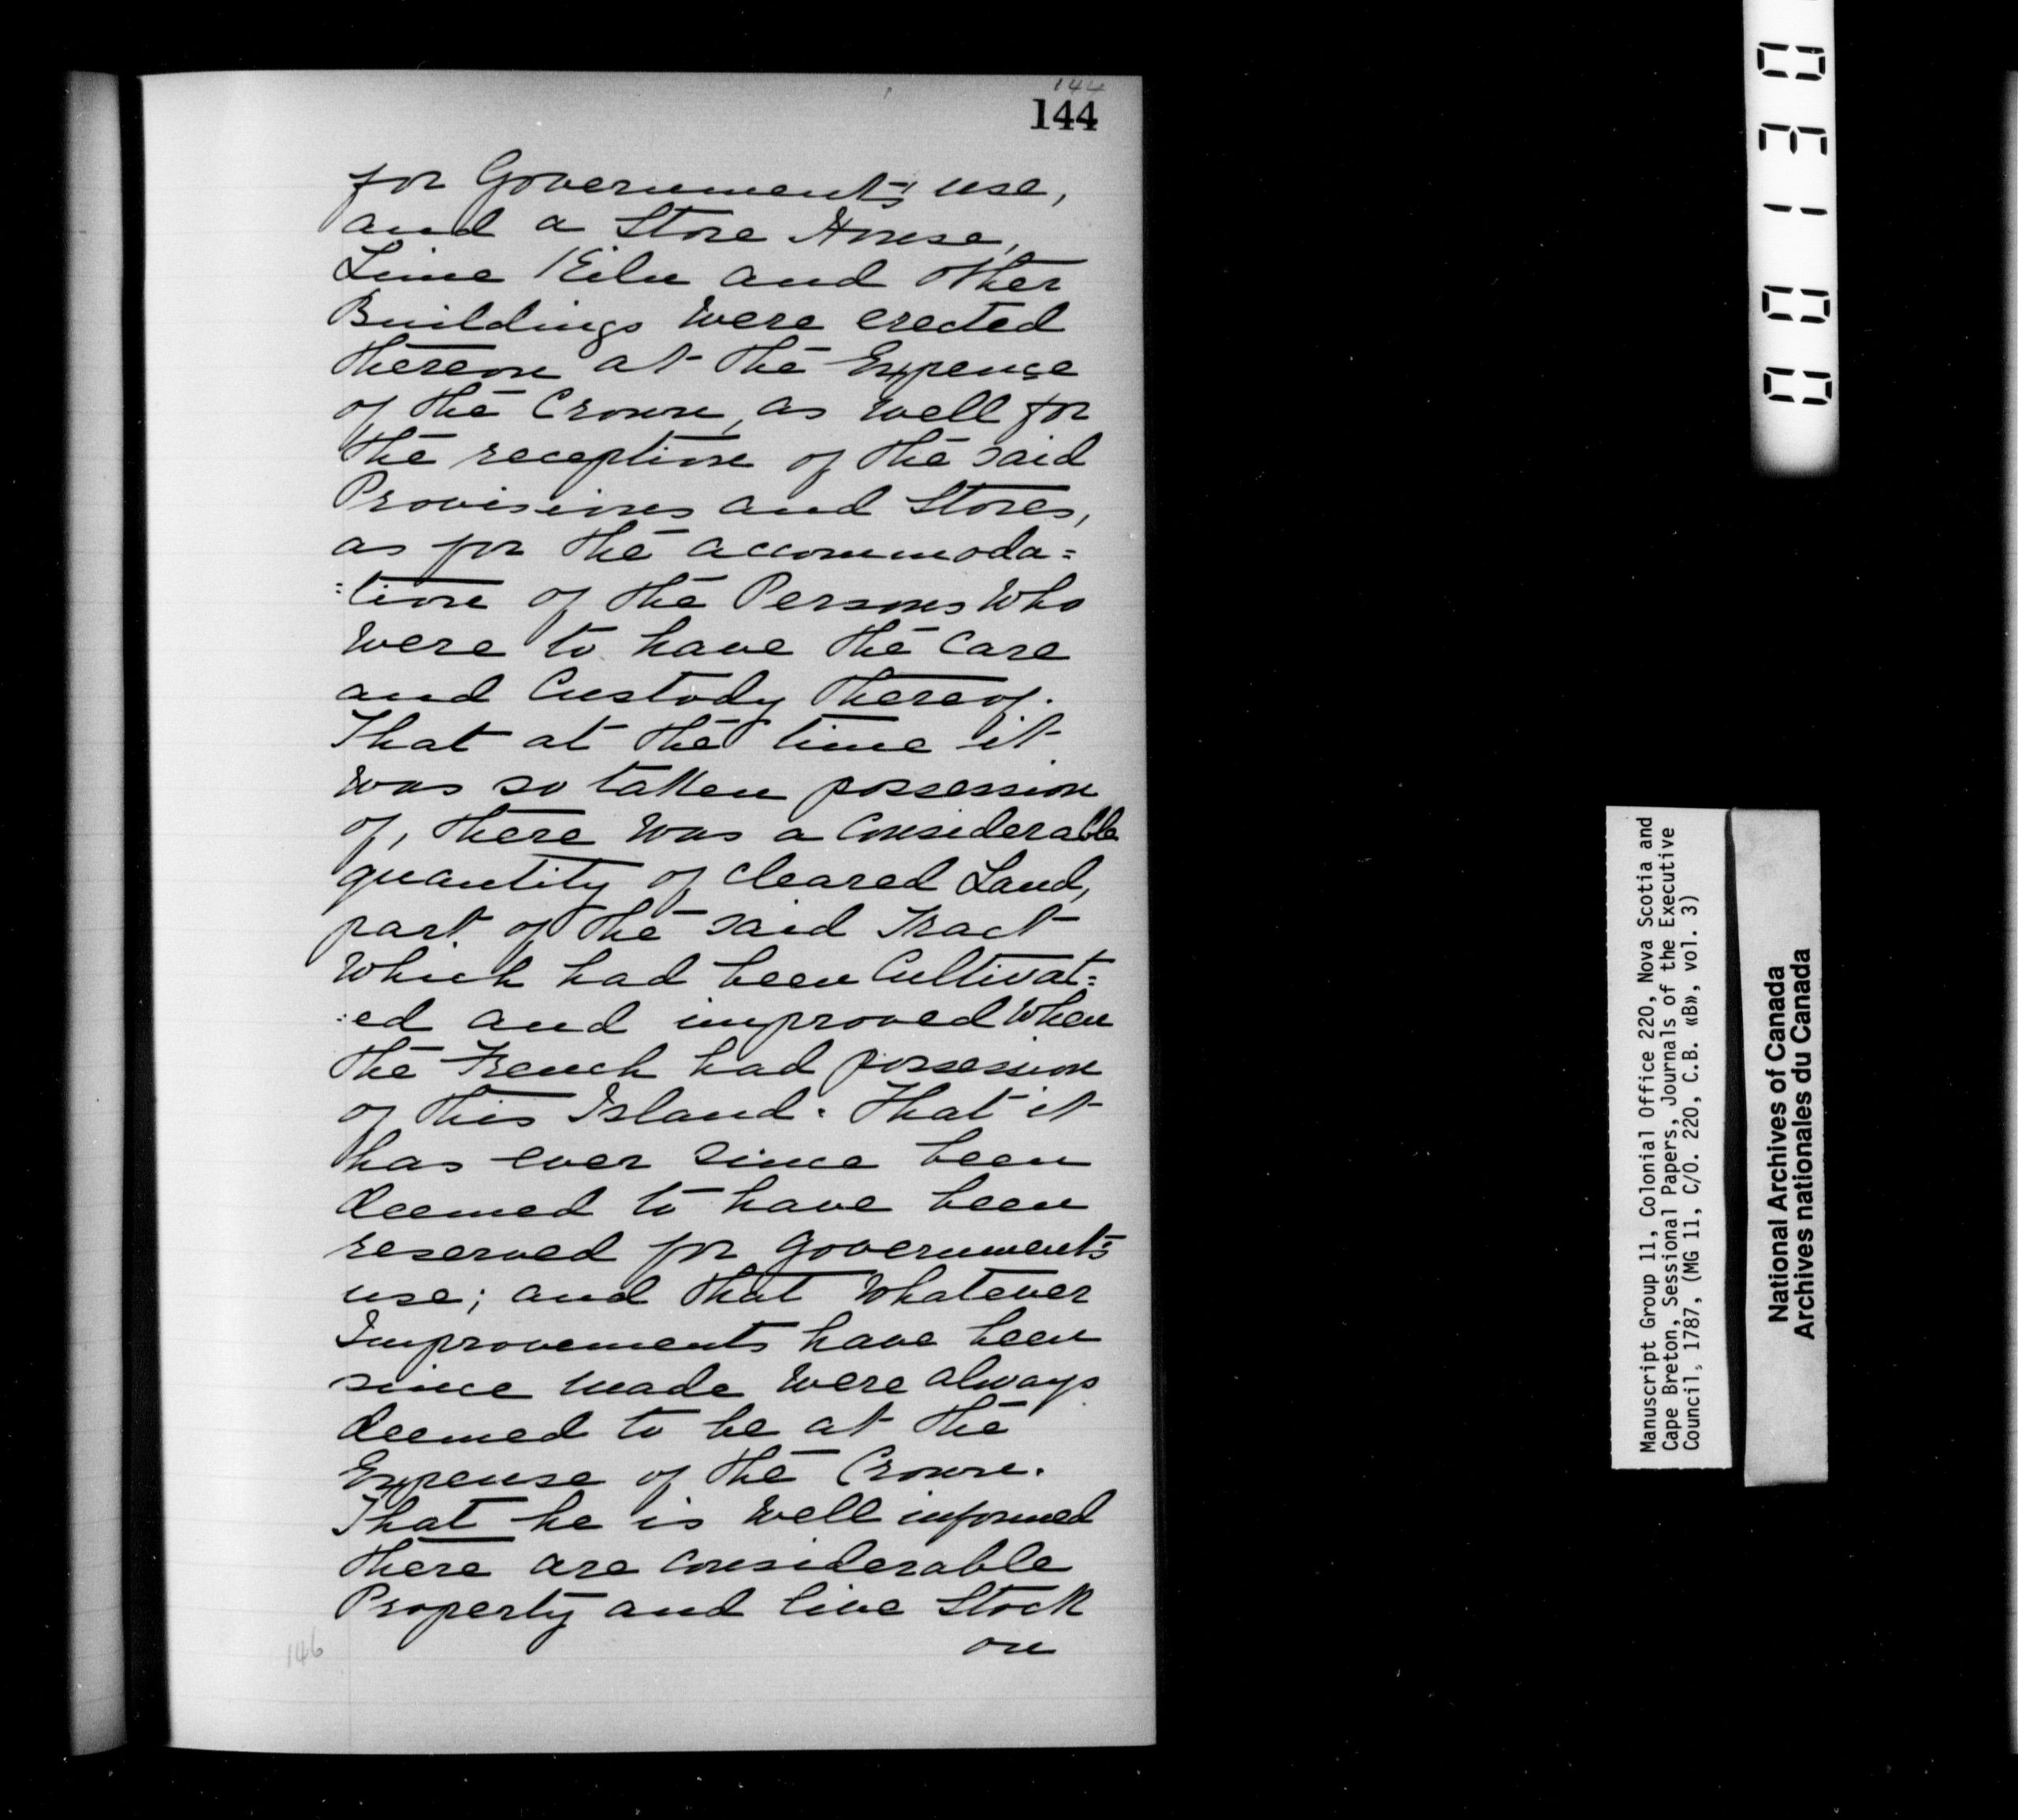 144
144
for Government's use,
and a Store House,
Lime Kiln and other
Buildings were erected
thereon at the Expense
of the Crown, as well for
the reception of the said
Provisions and Stores,
as for the accommoda=
=tion of the Persons who
were to have the Care
and Custody thereof.
That at the time it
was so taken possession
of, there was a Considerable
quantity of cleared Land,
part of the said Tract
which had been Cultivat=
=ed and improved when
the French had possession
of this Island. That it
has ever since been
deemed to have been
reserved for Government's
use; and that whatever
Improvements have been
since made were always
deemed to be at the
Expense of the Crown.
That he is well informed
there are considerable
Property and live Stock
on
146
00130
Manuscript Group 11, Colonial Office 220, Nova Scotia and
Cape Breton, Sessional Papers, Journals of the Executive
Council, 1787, (MG 11, C/O. 220, C.B. «B», vol. 3)
National Archives of Canada
Archives nationales du Canada